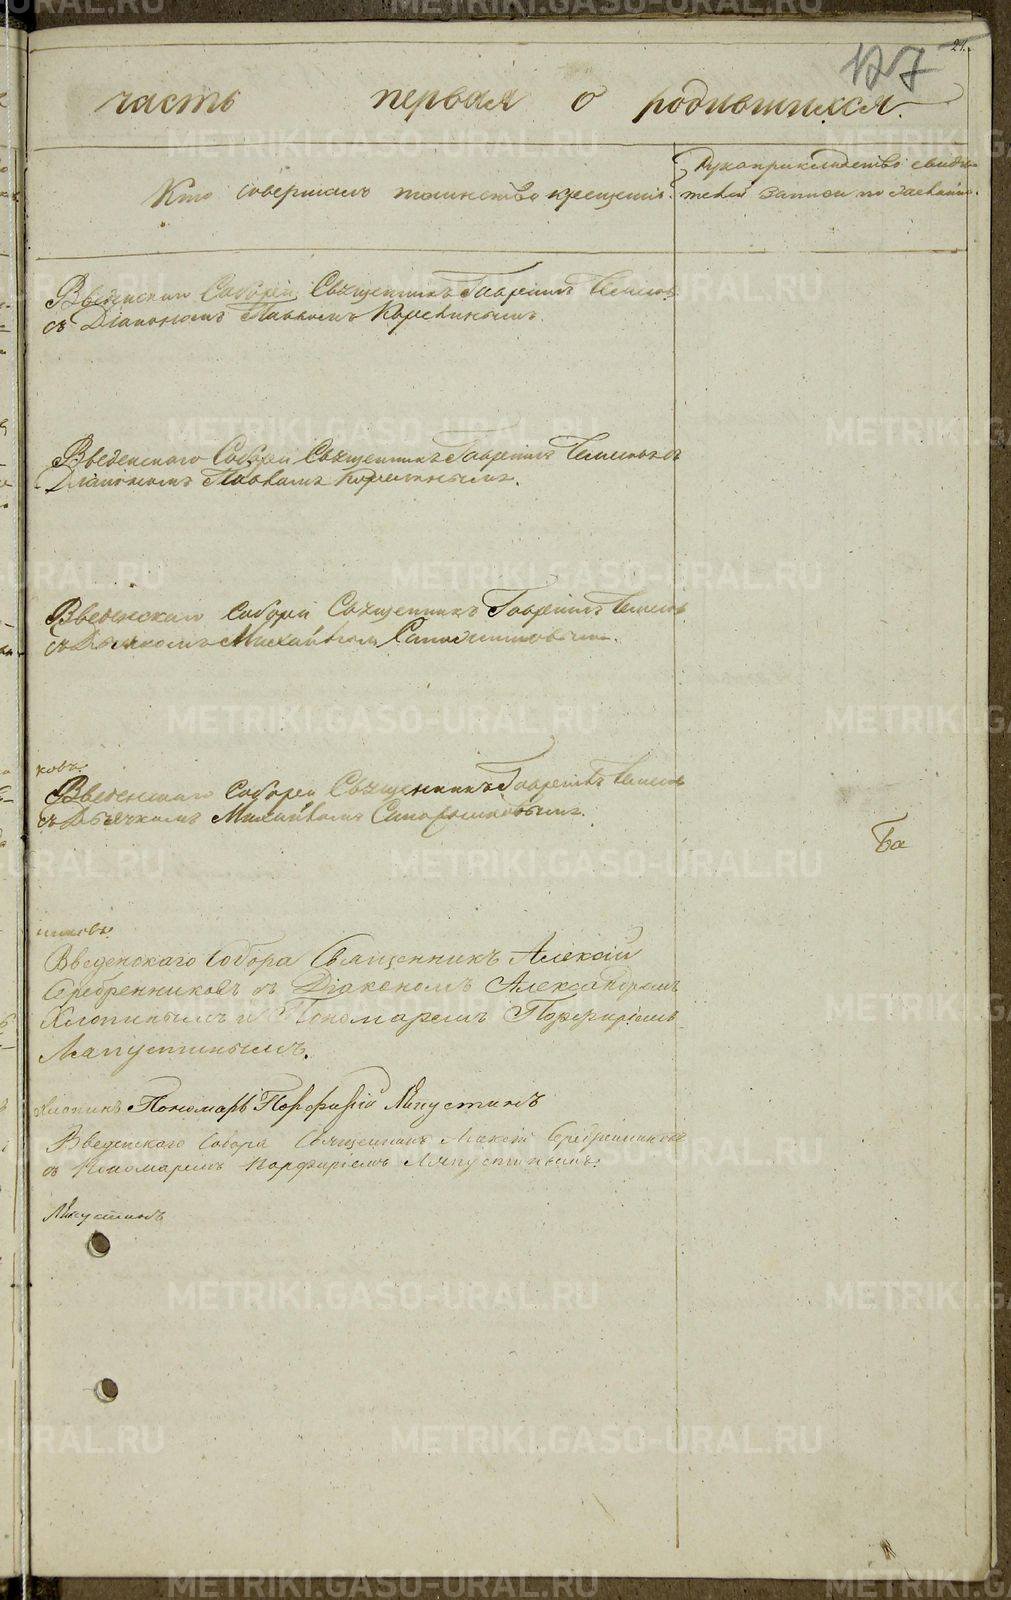 24.
127
часть первая о родившихся.
Кто совершалъ таинство крещенія.
Рукоприкладство свидѣ-
телей записи по желанію.
Введенскаго Собора Священникъ Гавріилъ
съ Діакономъ Павломъ
Введенскаго Собора Священникъ Гавріилъ съ
Діакономъ Павломъ
Введенскаго Собора Священникъ Гавріилъ
съ Дьячкомъ Михайломъ Сапожниковымъ.
ковъ.
Введенскаго Собора Священникъ Гавріилъ
съ Дьячкомъ Михайломъ Сапожниковымъ.
Введенскаго Собора Священникъ Алексій
Серебренниковъ съ Діакономъ Александромъ
Хлопинымъ и Пономаремъ Порфиріемъ
Лапустинымъ.
Хлопинъ Пономарь Порфирій Лапустинъ
Введенскаго Собора Священникъ Алексій Серебренниковъ
съ Пономаремъ Порфиріемъ Лапустинымъ.
Лапустинъ
METRIKI.GASO-URAL.RU